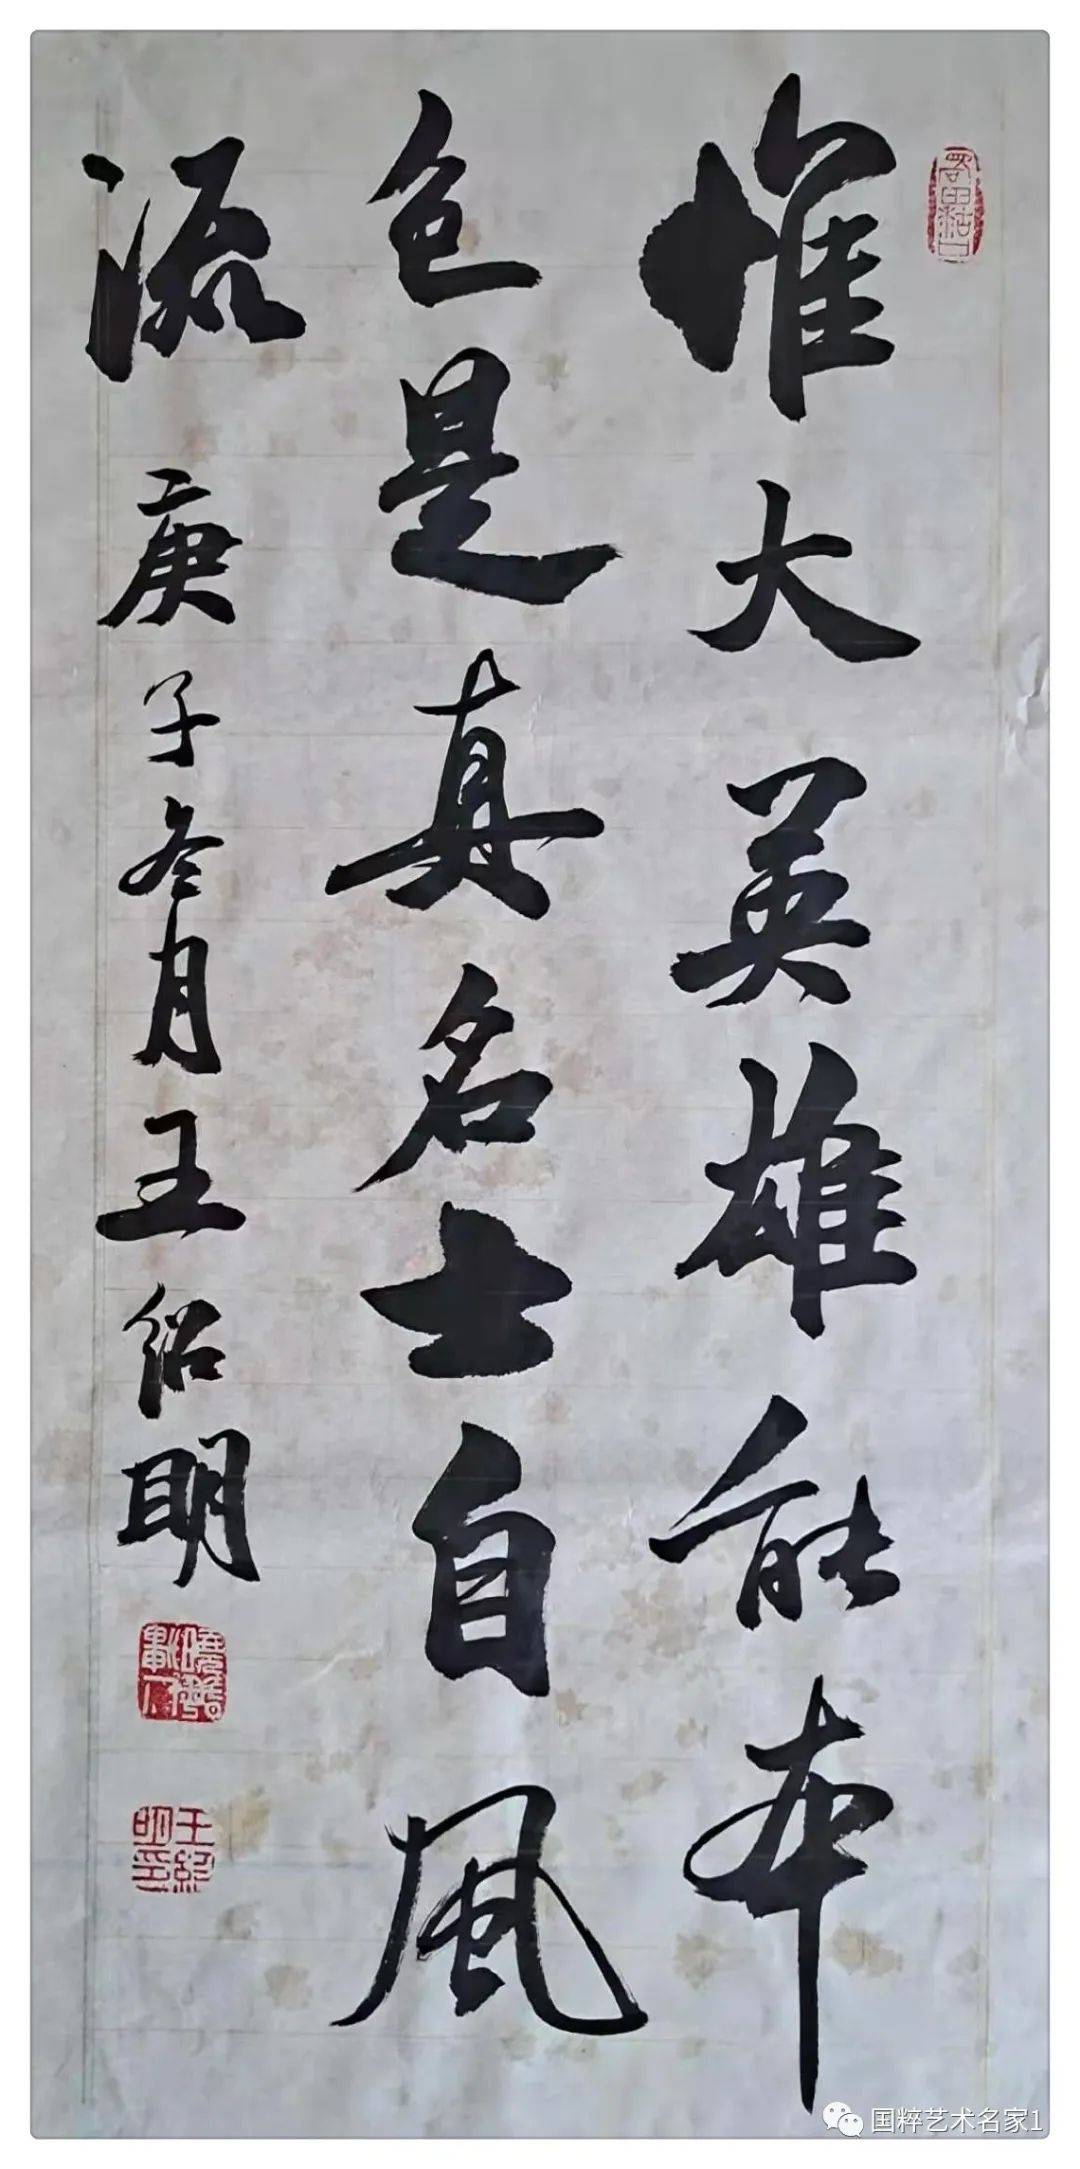 惟大英雄能本
色是真名士自風
流 庚子冬月 王绍明
王紹明印
国粹艺术名家1